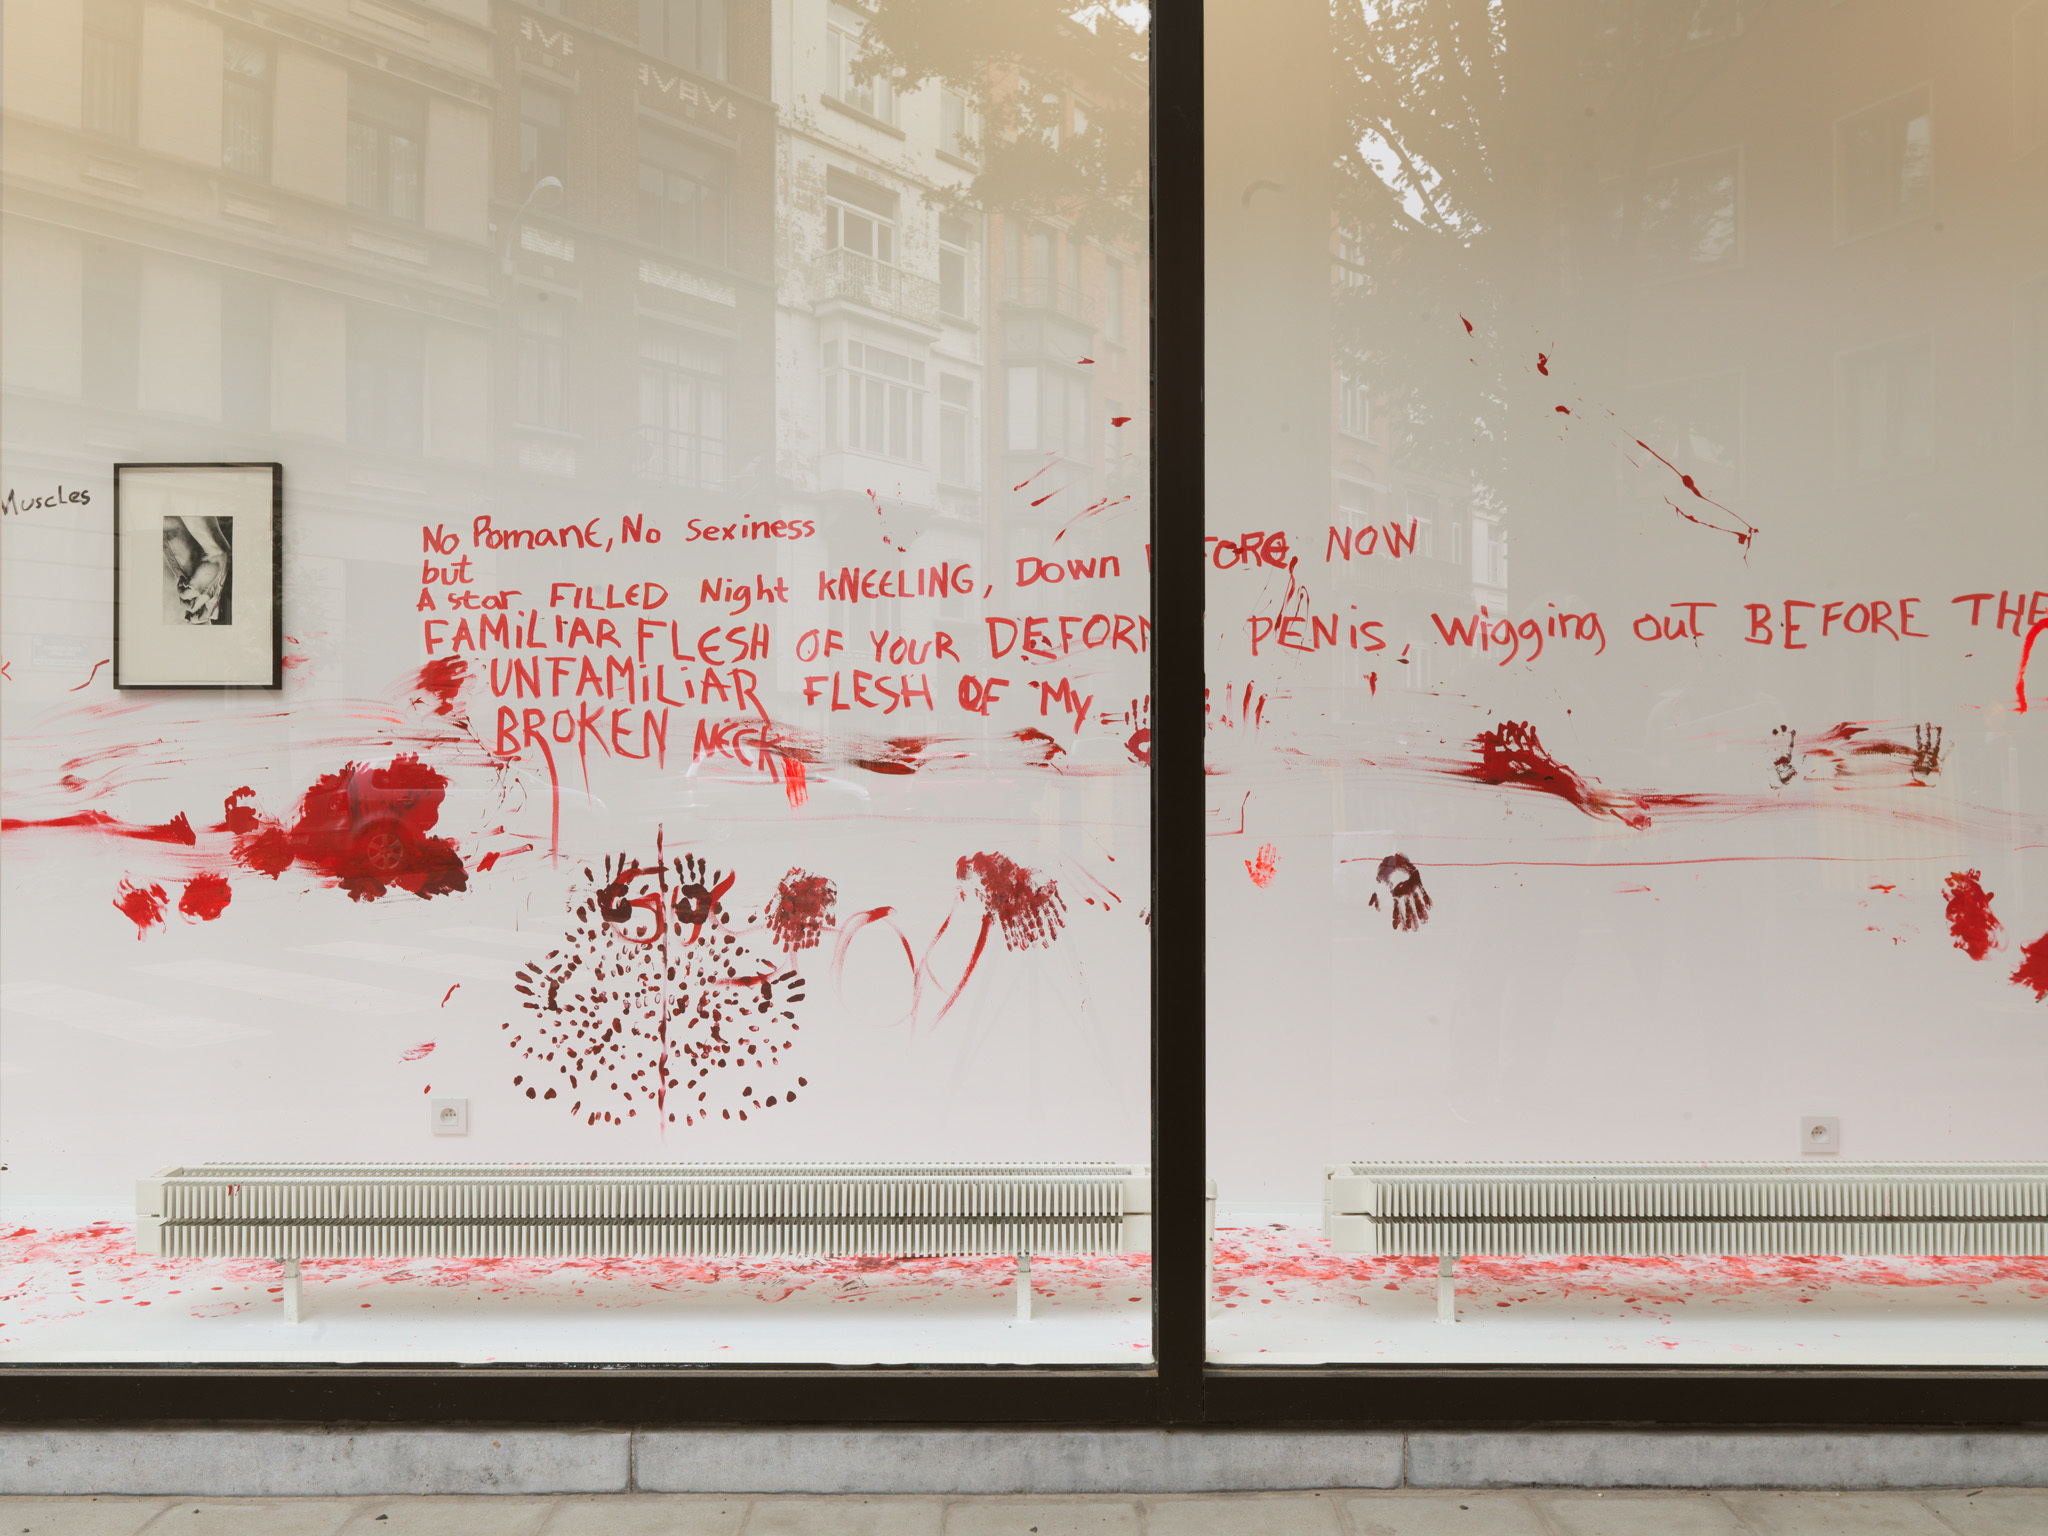 Muscles
No Romane, No sexiness
but
A star FILLED Night KNEELING, DOWN FORE NOW
FAMILIAR FLESH OF YOUR DEFOR PENIS, Wigging OUT BEFORE THE
UNFAMILIAR FLESH OF MY
BROKEN NECK